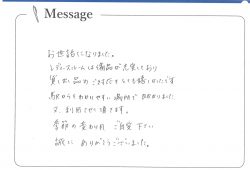 Message
お世話になりました。
レディースルームは備品が充実しており
貸し出し品のご対応もとても嬉しかったです
駅からもわかりやすい場所で 助かりました
又、利用させて頂きます。
季節の変わり目 ご自愛 下さい
誠に ありがとうございました。